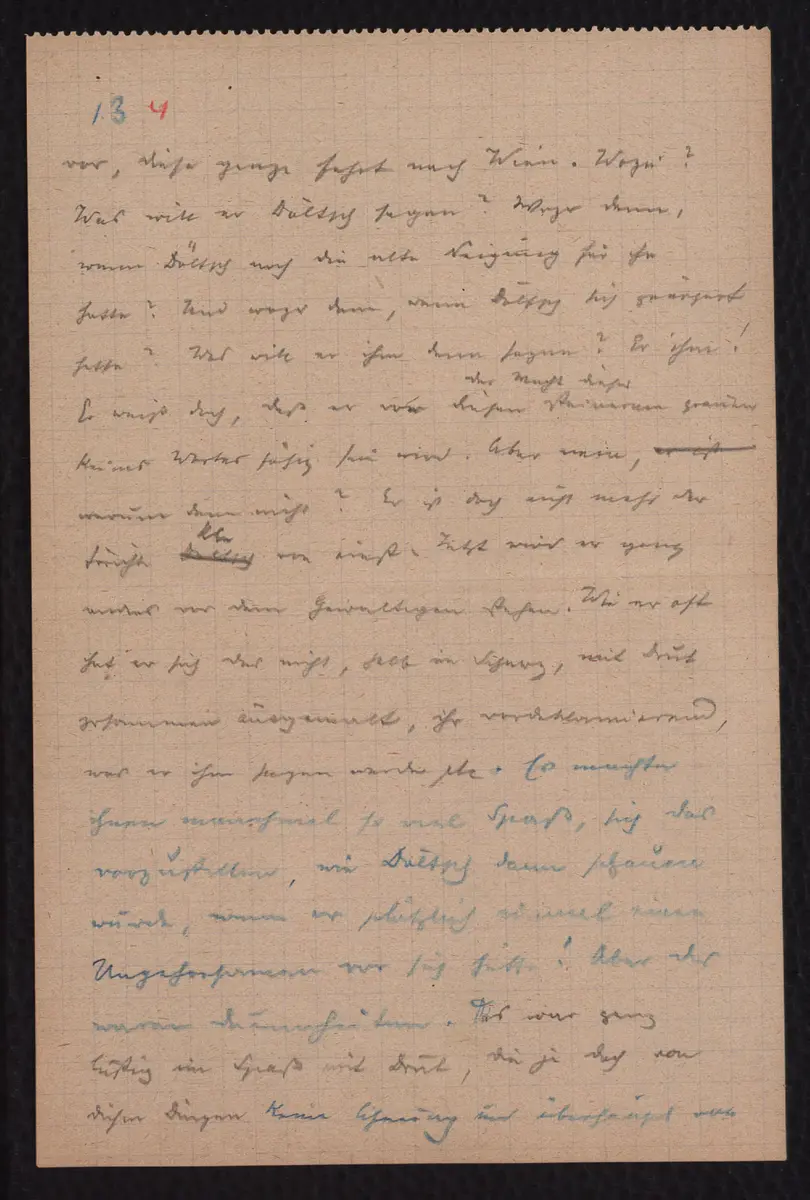 134
vor, diese ganze Fahrt nach Wien. Wozu?
Was will er Döltsch sagen? Wozu denn,
wenn Döltsch noch die alte Neigung für ihn
hatte? Und wozu denn, wenn Döltsch sich geärgert
hatte? Was will er ihm denn sagen? Er ihm!
der Macht dieser
Er weiß doch, daß er vor diesen steinernen grauen
keines Wortes fähig sein wird. Aber nein, er ist
warum denn nicht? Er ist doch nicht mehr der
Klu
törichte Döltsch von einst. Jetzt wird er ganz
anders vor dem Gewaltigen stehen. Wie er oft
hat er sich das nicht, halb im Scherz, mit Drut
zusammen ausgemalt, ihr vordeklamierend,
was er ihm sagen werde etc. Es machte
ihnen manchmal so viel Spaß, sich das
vorzustellen, wie Döltsch dann schauen
würde, wenn er plötzlich einmal einen
Ungehorsamen vor sich hätte! Aber das
waren Dummheiten. Das war ganz
lustig im Spaß mit Drut, die ja doch von
diesen Dingen keine Ahnung und überhaupt von